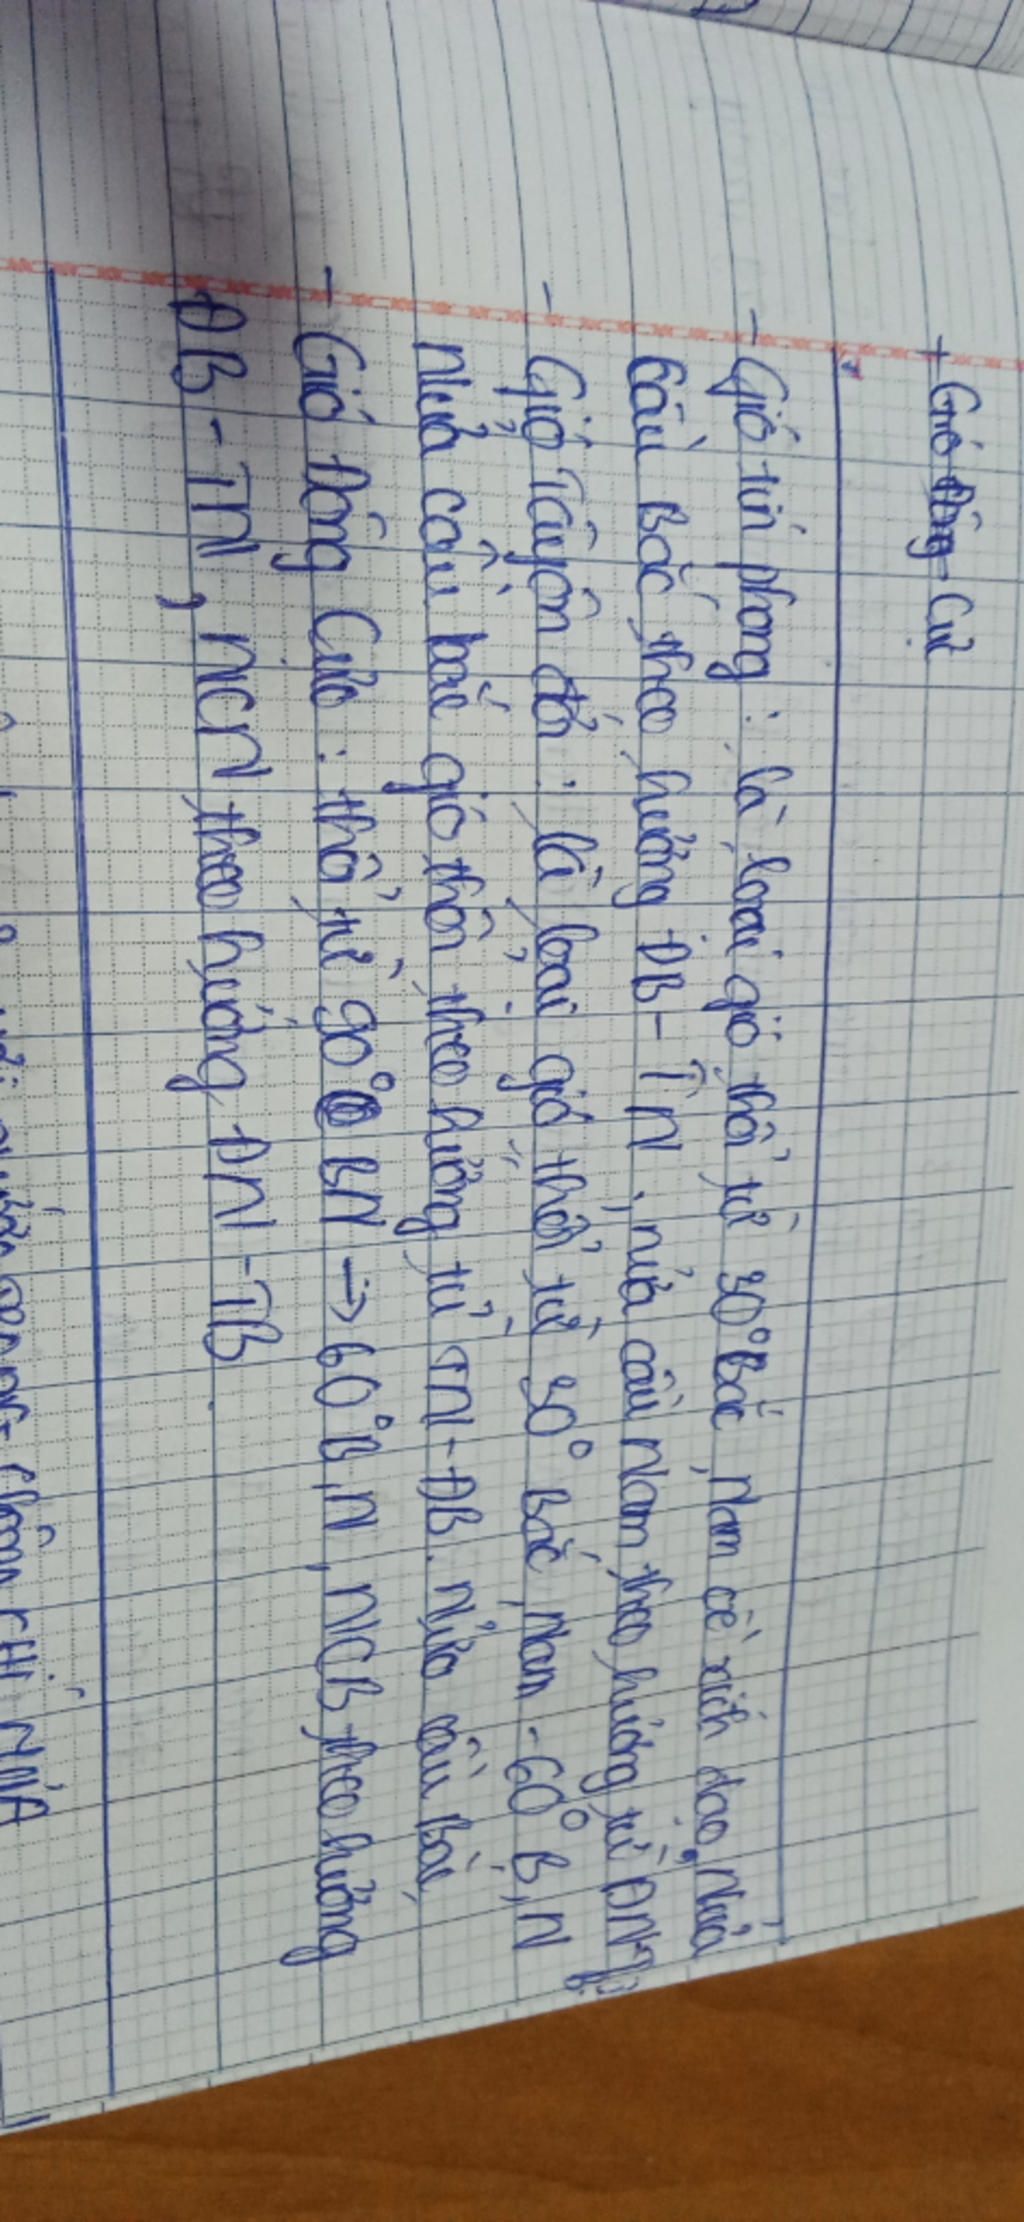 + Gió Đông Cực
- Gió tín phong : là loại gió thổi từ 30° Bắc, Nam về xích đạo, Nửa
Cầu Bắc theo hướng ĐB - TN, nửa cầu Nam theo hướng từ ĐN-TB
- Gió Tây ôn đới : là loại gió thổi từ 30° Bắc, Nam - 60° B, N
Nửa cầu bắc gió thổi theo hướng từ TN - ĐB. Nửa cầu Bắc,
- Gió Đông Cực : thổi từ 90° BN → 60° B, N, NCB theo hướng
ĐB - TN, NCN theo hướng ĐN - TB